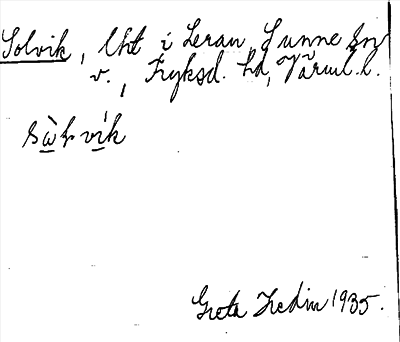 Solvik, Lht i Leran, Sunne sn
v., Fryksd. hd, Värml. l.
Greta Hedin 1935.